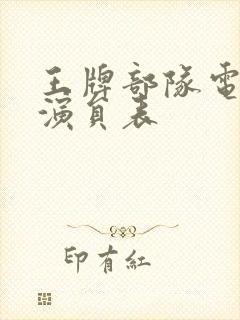 王牌部隊電
演員表
印有紅